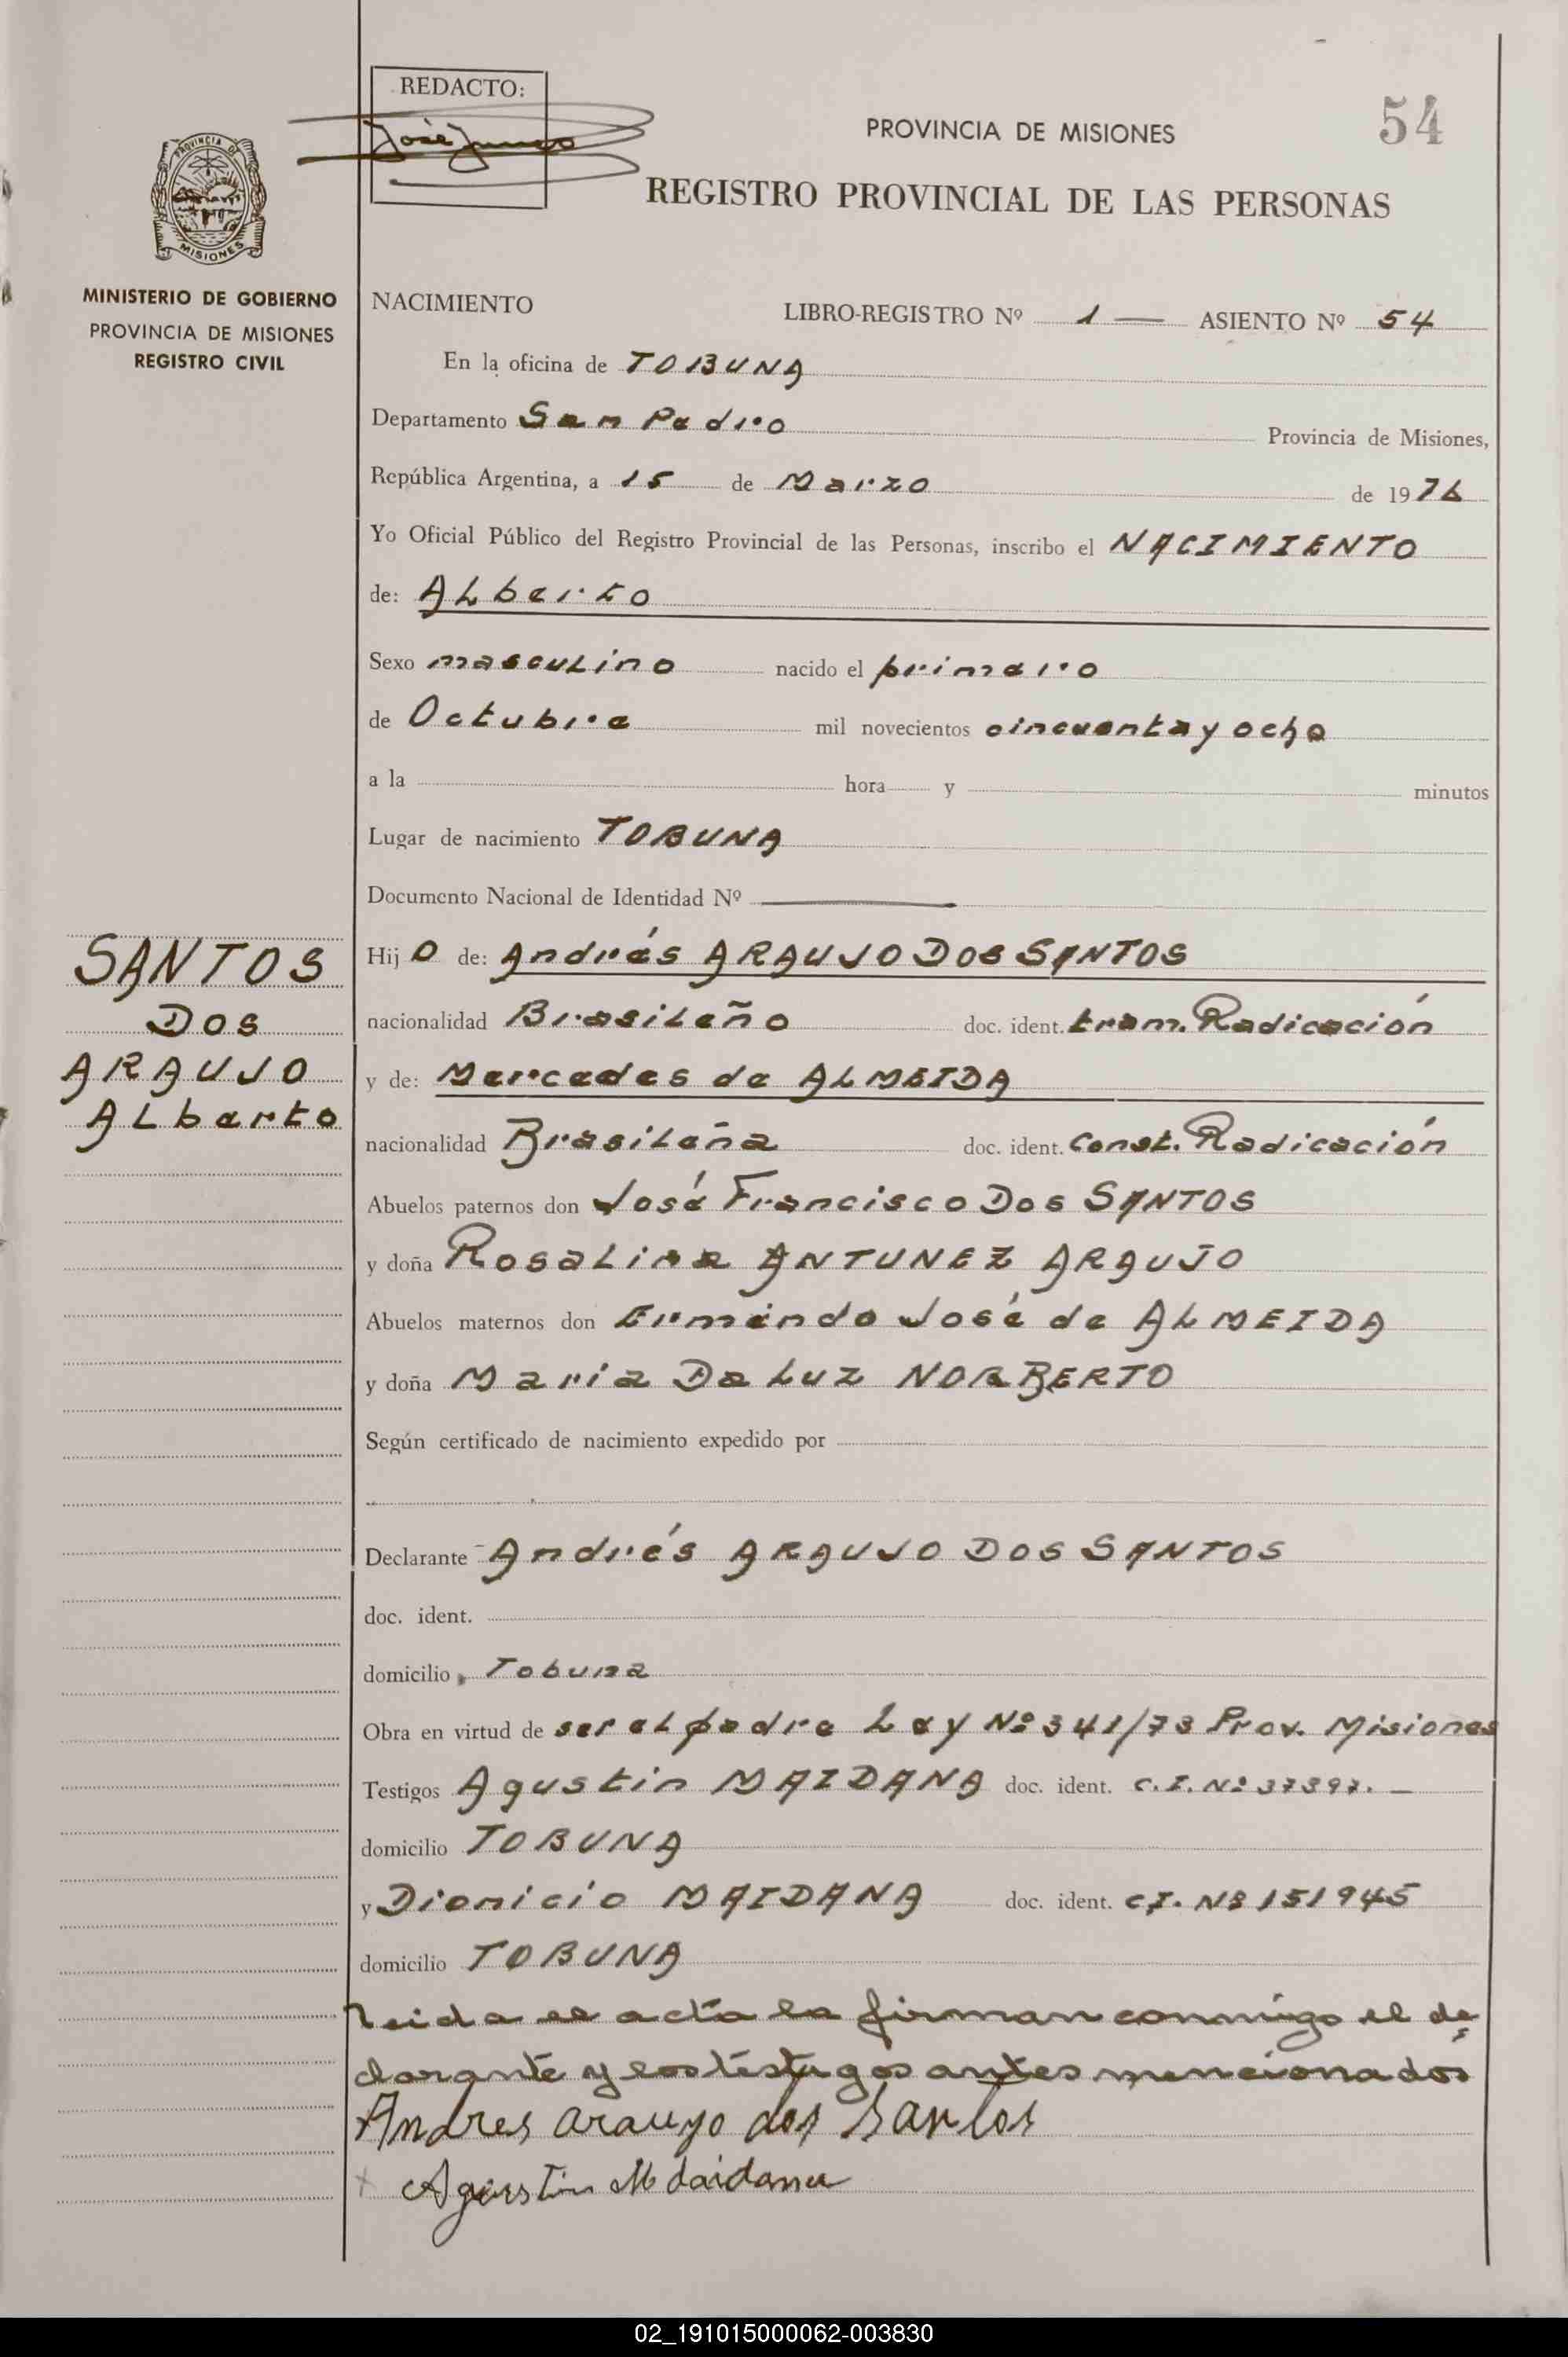 REDACTO:
José
PROVINCIA DE MISIONES
54
REGISTRO PROVINCIAL DE LAS PERSONAS
PROVINCIA DE
MISIONES
MINISTERIO DE GOBIERNO
PROVINCIA DE MISIONES
REGISTRO CIVIL
NACIMIENTO LIBRO-REGISTRO Nº 1 — ASIENTO Nº 54
En la oficina de TOBUNA
Departamento San Pedro Provincia de Misiones,
República Argentina, a 15 de Marzo de 1976
Yo Oficial Público del Registro Provincial de las Personas, inscribo el NACIMIENTO
de: ALberto
Sexo mascuLino nacido el primero
de Octubre mil novecientos cincuenta y ocho
a la hora y minutos
Lugar de nacimiento TOBUNA
Documento Nacional de Identidad Nº —
SANTOS
DOS
ARAUJO
ALberto
Hij O de: Andrés ARAUJO DOS SANTOS
nacionalidad BrasiLeño doc. ident. tram. Radicación
y de: Mercedes de ALMEIDA
nacionalidad BrasiLeña doc. ident. Const. Radicación
Abuelos paternos don José Francisco Dos SANTOS
y doña RosaLina ANTUNEZ ARAUJO
Abuelos maternos don Ermindo José de ALMEIDA
y doña Maria Da Luz NORBERTO
Según certificado de nacimiento expedido por
Declarante Andrés ARAUJO DOS SANTOS
doc. ident.
domicilio Tobuna
Obra en virtud de ser eL padre Ley Nº 341/73 Prov. Misiones
Testigos Agustin MAIDANA doc. ident. C.I. Nº 37397. —
domicilio TOBUNA
y Dionicio MAIDANA doc. ident. C.I. Nº 151945
domicilio TOBUNA
Leida el acta la firman conmigo el de
clarante y los testigos antes mencionados
Andres araujo dos Santos
Agustin Maidana
02_191015000062-003830